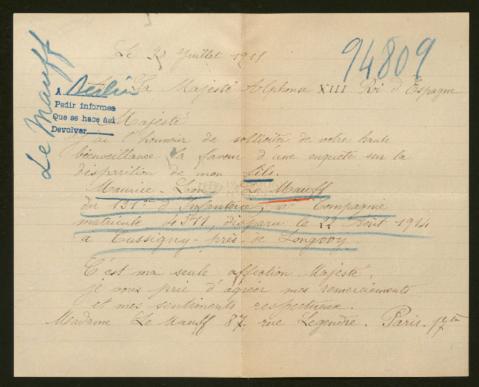 Le Mauff
94809
Le Juillet
A Berlin
Pedir informes
Que se hace así
Devolver
A Sa Majesté Alphonse XIII Roi d'Espagne
Majesté
ai l'honneur de solliciter de votre haute
bienveillance la faveur d'une enquête sur la
disparition de mon fils.
Maurice Léon Le Mauff
du 131me d'Infanterie, Compagnie
matricule 4511, disparu le 22 Août 1914
à Cussigny près de Longwy
C'est ma seule affection Majesté,
je vous prie d'agréer mes remerciements
et mes sentiments respectueux.
Madame Le Mauff 87 rue Legendre. Paris.